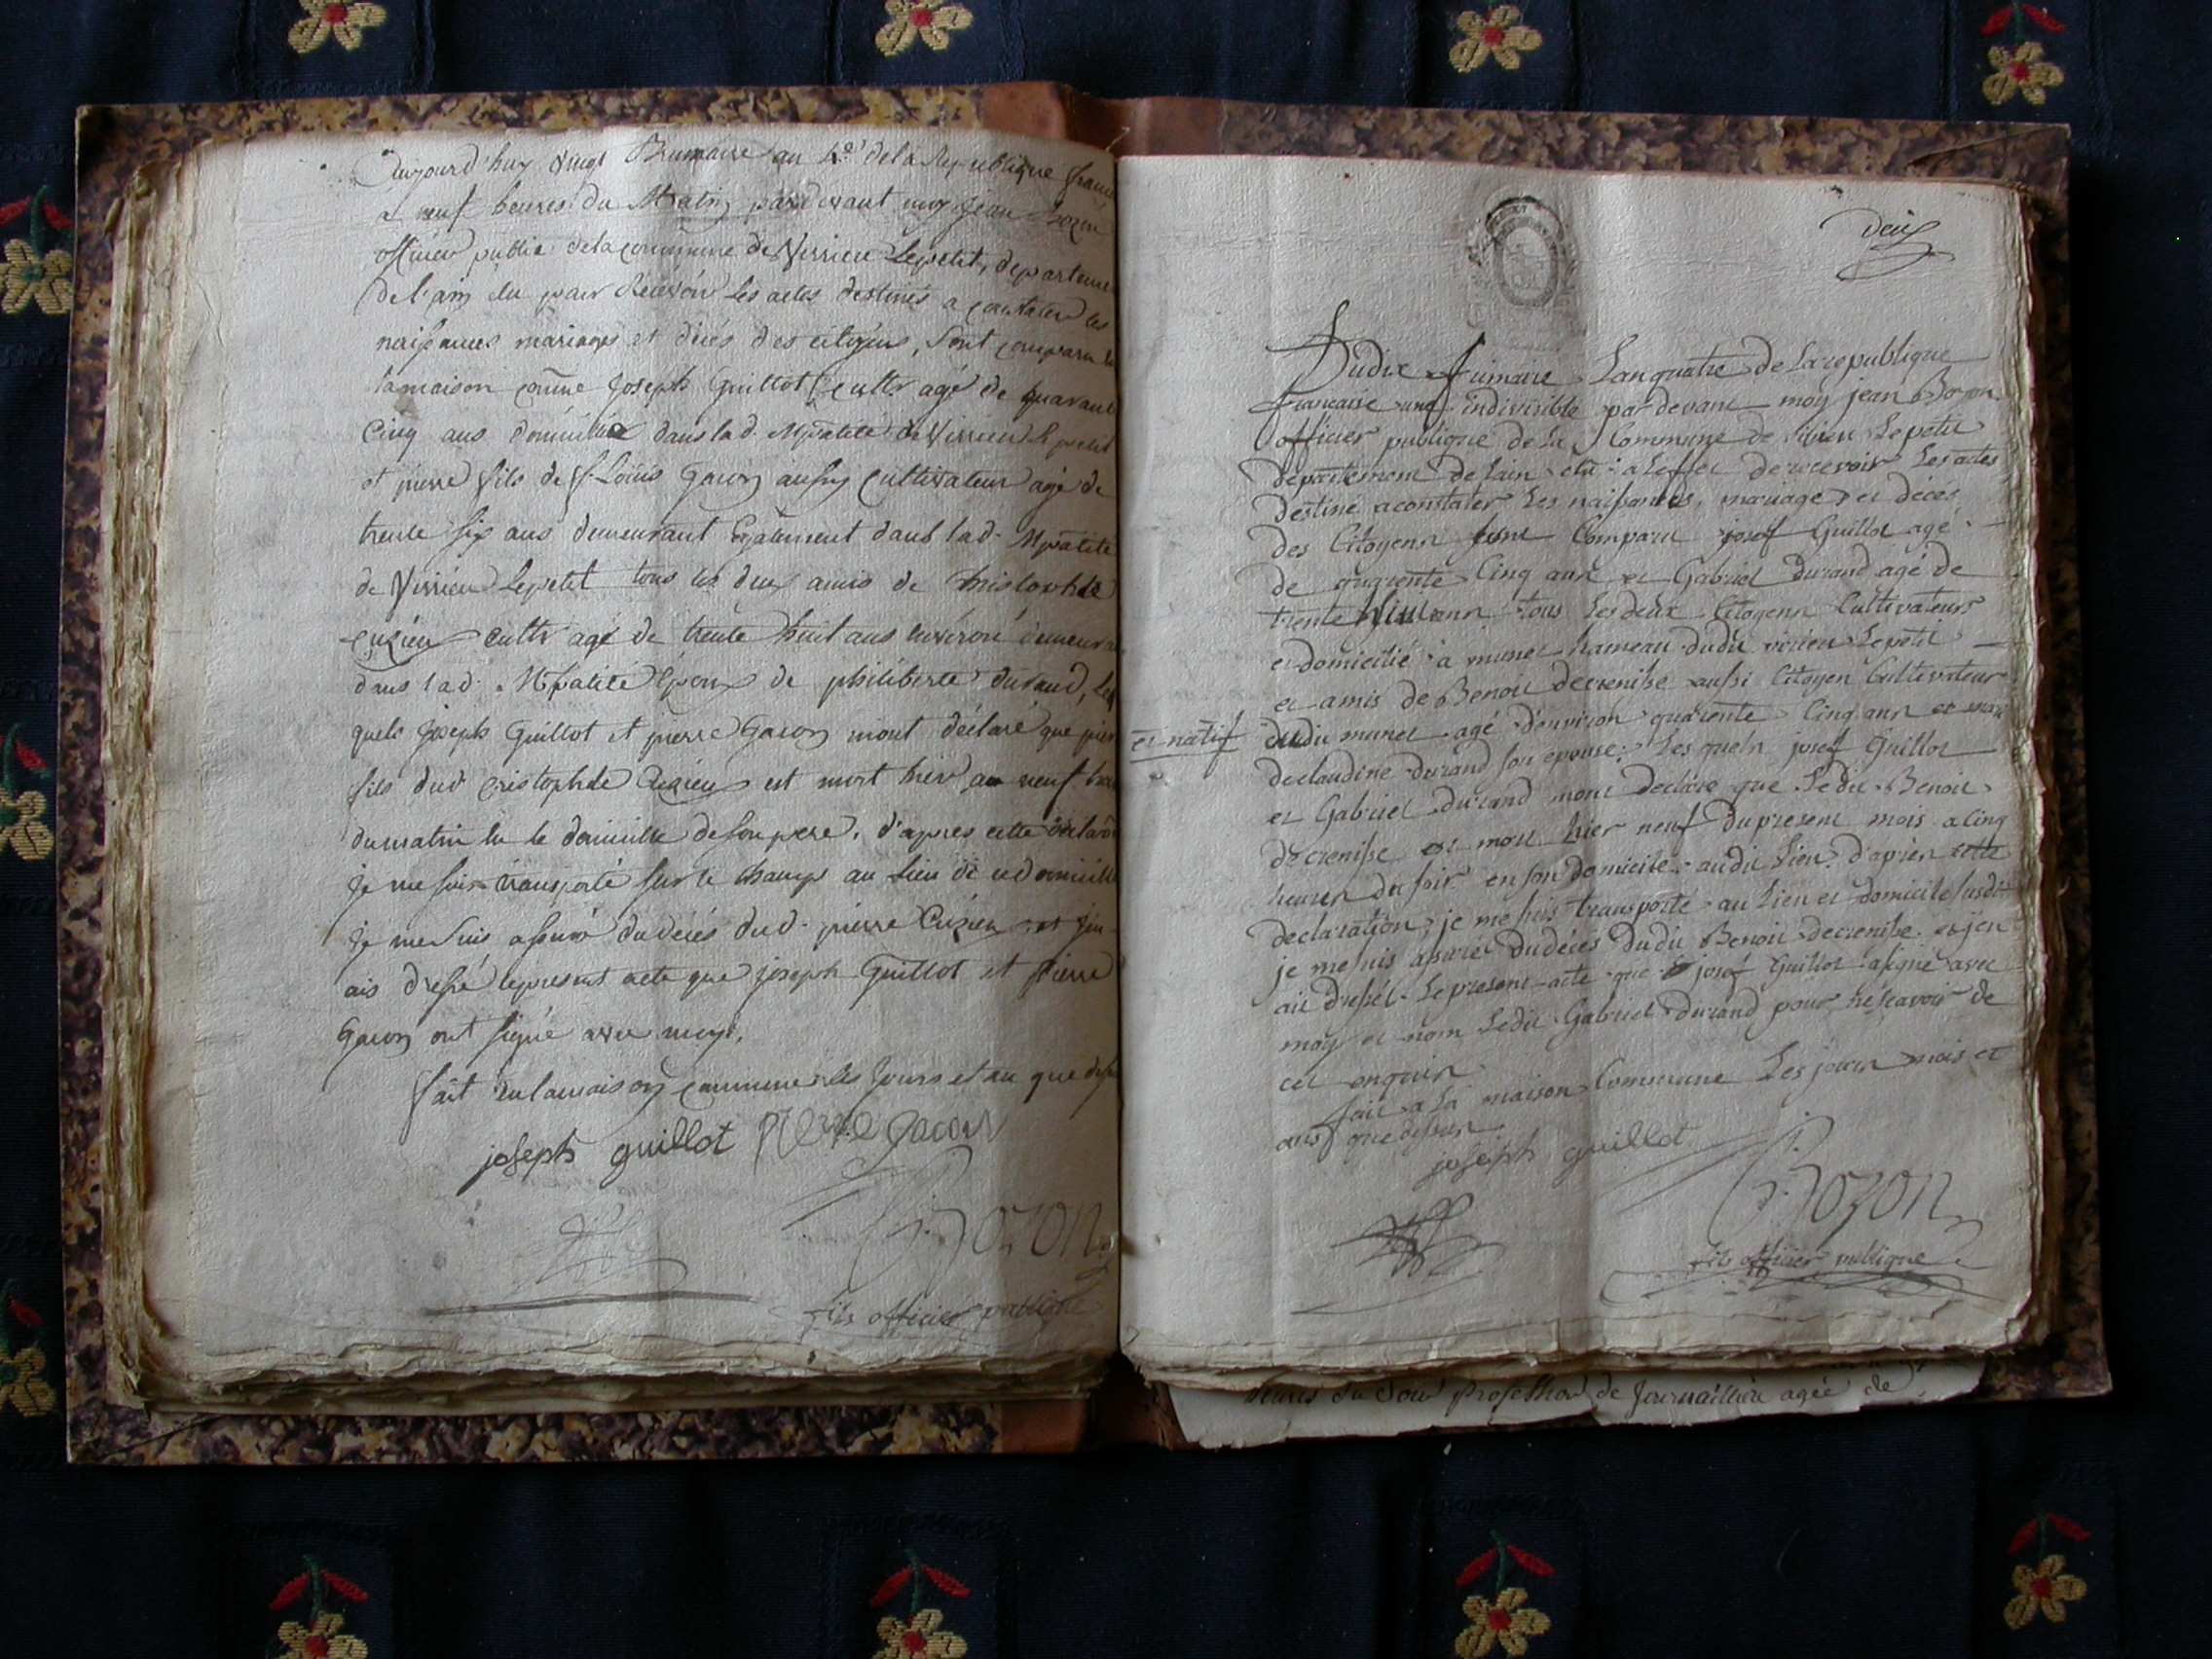 Aujourd'huy vingt Brumaire an 4e de la Republique franc
a neuf heures du Matin pardevant moy Jean Bozon
officier public de la commune de Virrieu Lepetit, departeme
de l'ain élu pour Recevoir Les actes destinés a constater les
naissances mariages et décés des citoyens, sont comparu
la maison comne Joseph Guillot cultr agé de quarante
Cinq ans domicilié dans lad. Mpalité de Virrieu Lepetit
et pierre fils de Louis Gacon aussy Cultivateur agé de
trente six ans demeurant Egalement dans lad. Mpalité
de Virrieu Lepetit tous les deux amis de Christophle
cuzieu cultr agé de trente huit ans environ demeur
dans lad. Mpalité Epoux de philiberte durand, les
quels Joseph Guillot et pierre Gacon m'ont déclaré que pier
fils dud cristophle Cuzieu est mort hier a neuf heu
du matin le domicille de son pere. d'apres cette
Je me suis transporté sur le champs au Lieu de ce domicille
Je me suis assuré du décés dud. pierre Cuzieu et j'en
ais dressé le present acte que joseph Guillot et pierre
Gacon ont signé avec moy.
fait en la maison commune les Jours et an que dessu
joseph guillot pierre gacon
Bozon
fils officier publique
deux
Du dix frimaire L'an quatre de La republique
francaise une indivisible par devant moy jean Bozon
officier publique de La Commune de virieu Lepetit
departement de Lain elu a Leffet de recevoir Les actes
destiné a constater Les naissances, mariage et décés
des Citoyens sont Comparu josef Guillot agé
de quarente Cinq ans et Gabriel durand agé de
trente huit ans tous Les deux Citoyens Cultivateurs
et domicilié a munet hameau dudit virieu Lepetit
et amis de Benoit decrenisse aussi Citoyen Cultivateur
et natif dudit munet agé d'environ quarente Cinq ans et mari
de claudine durand son epouse; Les quels josef Guillot
et Gabriel durand mont declaré que Ledit Benoit
decrenisse est mort hier neuf du present mois a Cinq
heures du soir en son domicile audit Lieu. d'apres cette
declaration je me suis transporté au Lieu et domicile susdit
je me suis assuré du décés dudit Benoit decrenisse et jen
ait dressé Le present acte que josef Guillot a signé avec
moy et nom Ledit Gabriel durand pour ne scavoir de
cet enquis
fait a La maison Commune Les jours mois et
ans que dessus
joseph guillot
Bozon
fils officier publique
heures du Soir profession de Journaillière agée de